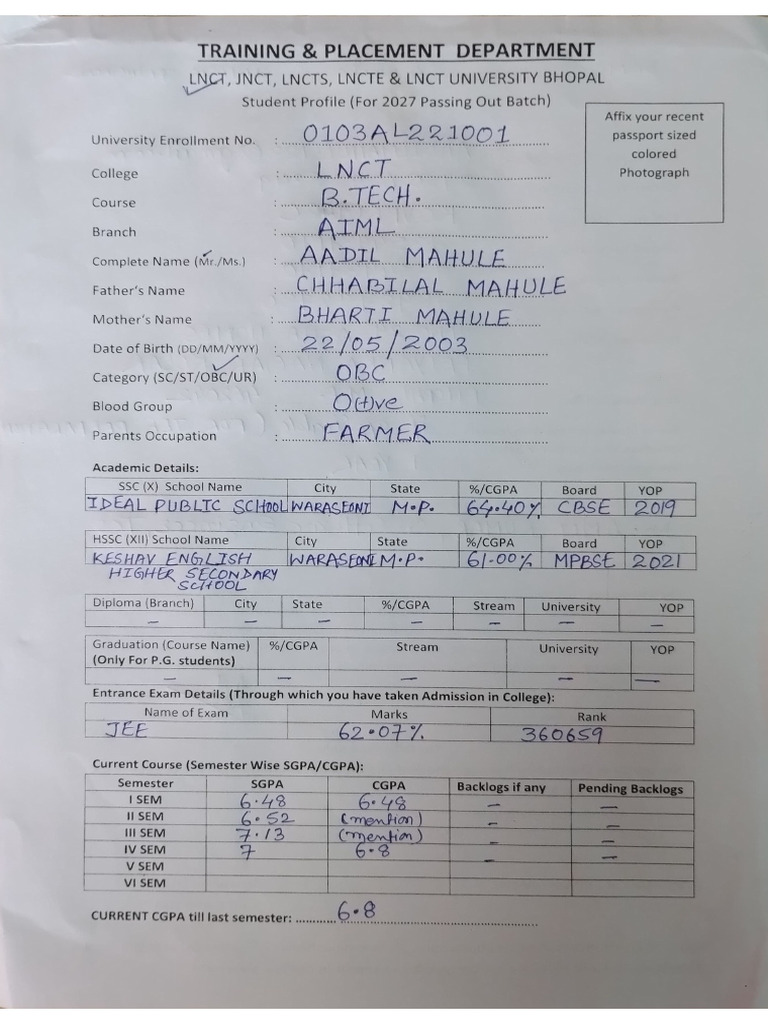 TRAINING & PLACEMENT DEPARTMENT
LNCT, JNCT, LNCTS, LNCTE & LNCT UNIVERSITY BHOPAL
Student Profile (For 2027 Passing Out Batch)
Affix your recent
passport sized
colored
Photograph
University Enrollment No. : 0103AL221001
College : LNCT
Course : B.TECH.
Branch : AIML
Complete Name (Mr./Ms.) : AADIL MAHULE
Father's Name : CHHABILAL MAHULE
Mother's Name : BHARTI MAHULE
Date of Birth (DD/MM/YYYY) : 22/05/2003
Category (SC/ST/OBC/UR) : OBC
Blood Group : O(+)ve
Parents Occupation : FARMER
Academic Details:
SSC (X) School Name City State %/CGPA Board YOP
IDEAL PUBLIC SCHOOL WARASEONI M.P. 64.40% CBSE 2019
HSSC (XII) School Name City State %/CGPA Board YOP
KESHAV ENGLISH WARASEONI M.P. 61.00% MPBSE 2021
HIGHER SECONDARY
SCHOOL
Diploma (Branch) City State %/CGPA Stream University YOP
— — — — — — —
Graduation (Course Name) %/CGPA Stream University YOP
(Only For P.G. students)
— — — — —
Entrance Exam Details (Through which you have taken Admission in College):
Name of Exam Marks Rank
JEE 62.07% 360659
Current Course (Semester Wise SGPA/CGPA):
Semester SGPA CGPA Backlogs if any Pending Backlogs
I SEM 6.48 6.48 — —
II SEM 6.52 (mention) — —
III SEM 7.13 (mention) — —
IV SEM 7 6.8 — —
V SEM
VI SEM
CURRENT CGPA till last semester: 6.8